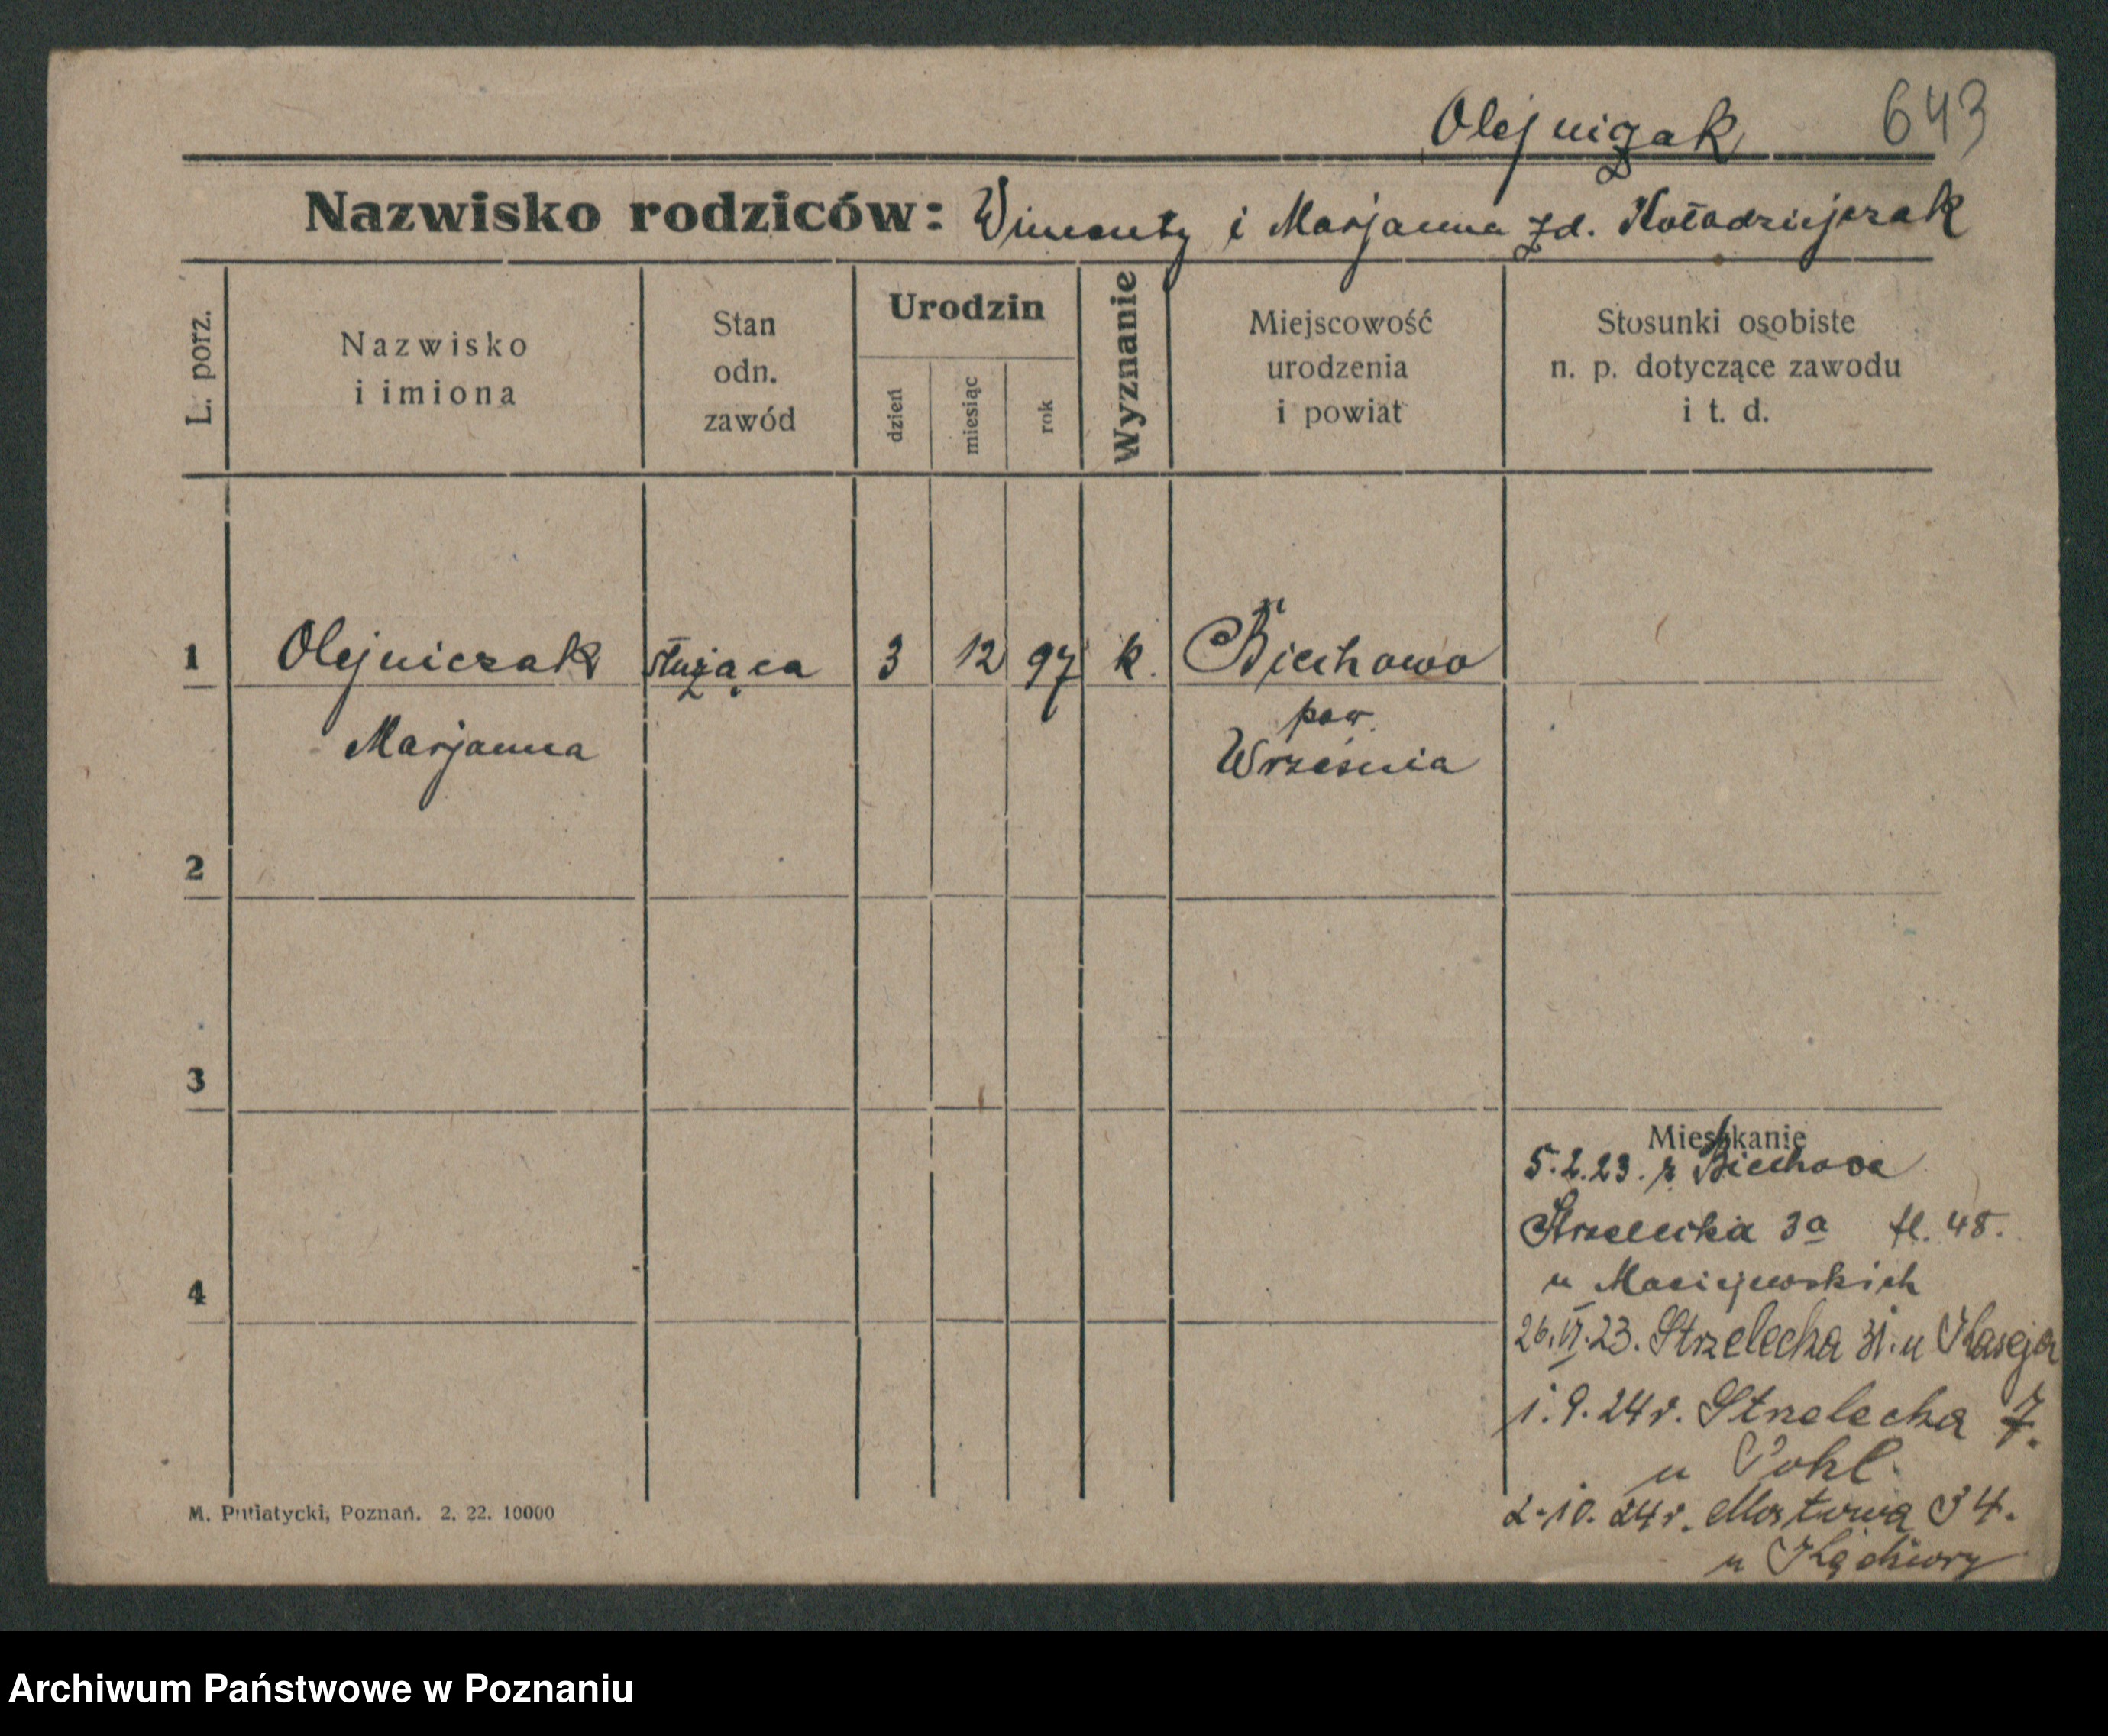 Olejniczak 643
Nazwisko rodziców: Wincenty i Marjanna zd. Kołodziejczak
L. porz.
Nazwisko
i imiona
Stan
odn.
zawód
Urodzin
dzień
miesiąc
rok
Wyznanie
Miejscowość
urodzenia
i powiat
Stosunki osobiste
n. p. dotyczące zawodu
i t. d.
1 Olejniczak służąca 3 12 97 k. Biechowo
pow.
Marjanna Września
2
3
Mieszkanie
5.2.23. z Biechowa
Strzelecka 3a tl. 48.
4
u Maciejewskich
26.VI.23. Strzelecka 31. u Kaseja
1.9.24r. Strzelecka 7.
u Pohl
2.10.24r. Mostowa 34.
u
M. Putiatycki, Poznań. 2. 22. 10000
Archiwum Państwowe w Poznaniu